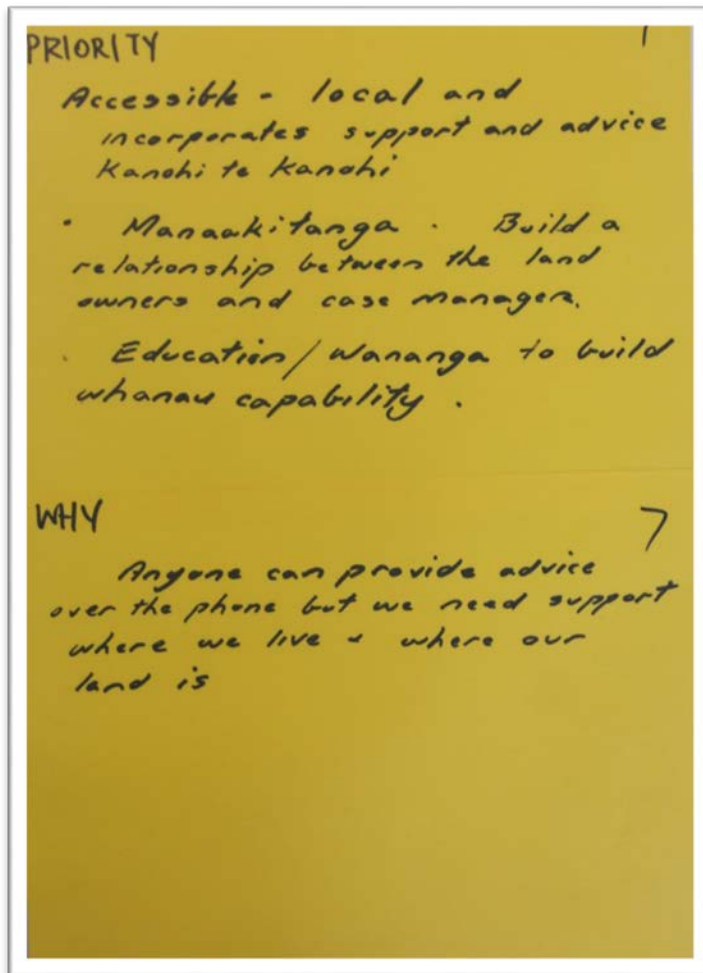 PRIORITY
Accessible - local and
incorporates support and advice
Kanohi te Kanohi
• Manaakitanga . Build a
relationship between the land
owners and case manager.
. Education/Wananga to build
whanau capability .
WHY 7
Anyone can provide advice
over the phone but we need support
where we live & where our
land is